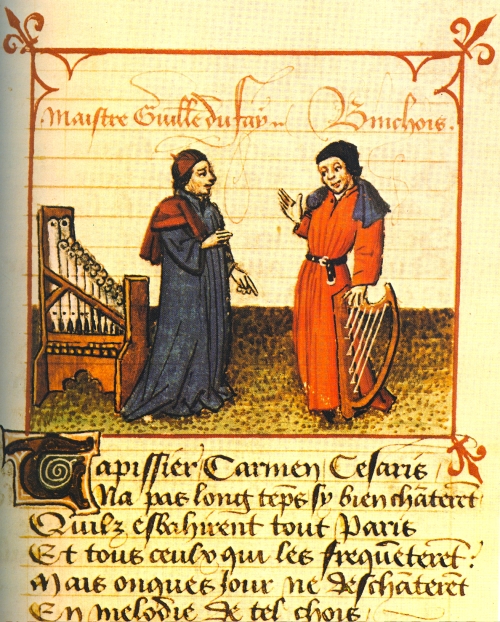 Maistre Guille du fay .. Binchois.
Tapissier Carmen Cesaris
Na pas long tēps sy bien chāterēt
Quilz esbahirent tout Paris
Et tous ceulx qui les frequēterēt :
Mais onques jour ne deschāterēt
En melodie de tel chois